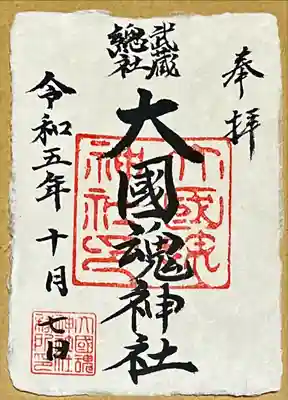 奉拝
武蔵
總社
大國魂神社
令和五年十月七日
大國魂
神社印
大國魂
神社
御印